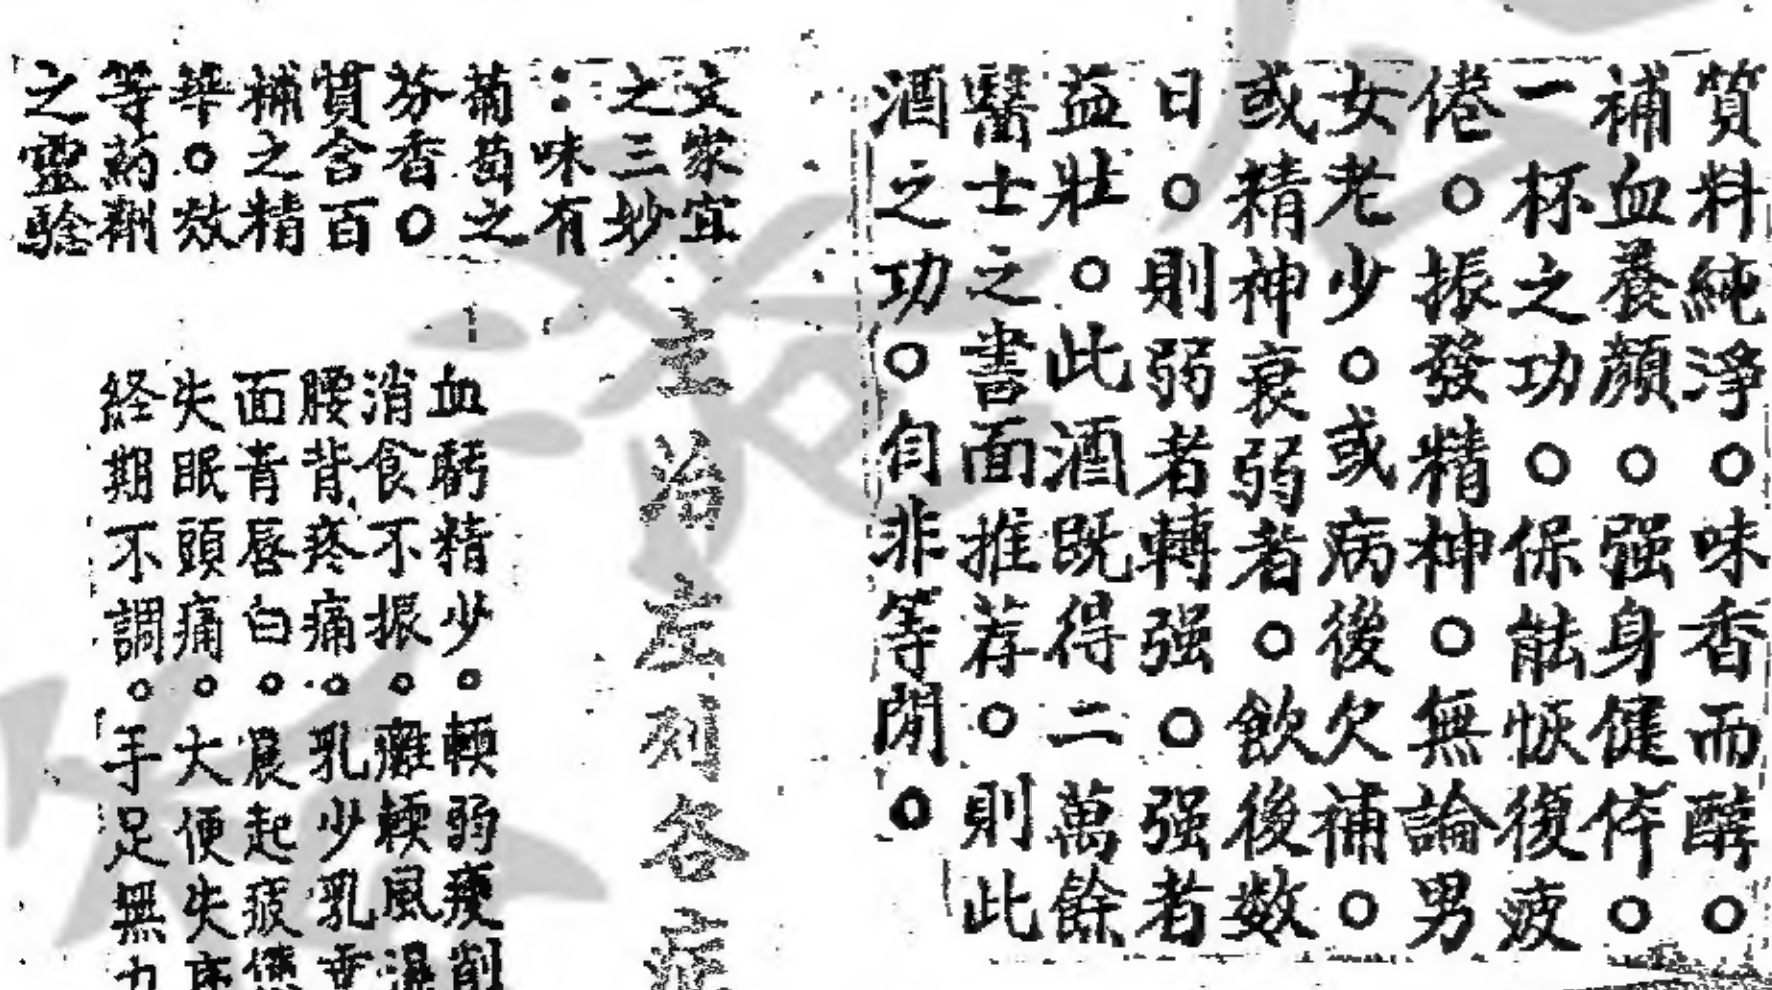 質料純淨。味香而醇。
補血養顏。强身健体。
一杯之功。保能恢復疲
倦。振發精神。無論男
女老少。或病後欠補。
或精神衰弱者。飲後数
日。則弱者轉强。强者
益壯。此酒既得二萬餘
醫士之書面推荐。則此
酒之功。自非等閒。
文家宜
之三妙
：味有
葡萄之
芬香。
質含百
補之精
華。效
等葯劑
之靈驗
主治左列各症
血虧精少。輭弱瘦削
消食不振。癱輭風濕
腰背疼痛。乳少乳
面青唇白。晨起疲倦
失眠頭痛。大便失
経期不調。手足無力